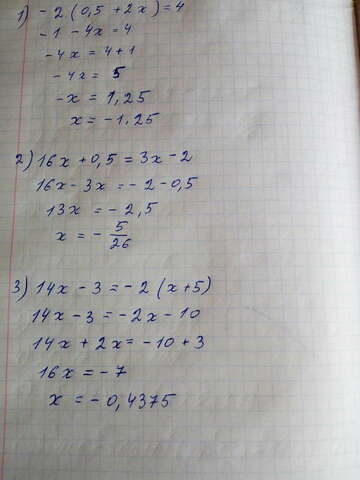 1) -2(0,5 + 2x) = 4
-1 - 4x = 4
-4x = 4+1
-4x = 5
-x = 1,25
x = -1.25
2) 16x + 0,5 = 3x - 2
16x - 3x = -2 - 0,5
13x = -2,5
x = - 5/26
3) 14x - 3 = -2 (x+5)
14x - 3 = -2x - 10
14x + 2x = -10 + 3
16x = -7
x = -0,4375